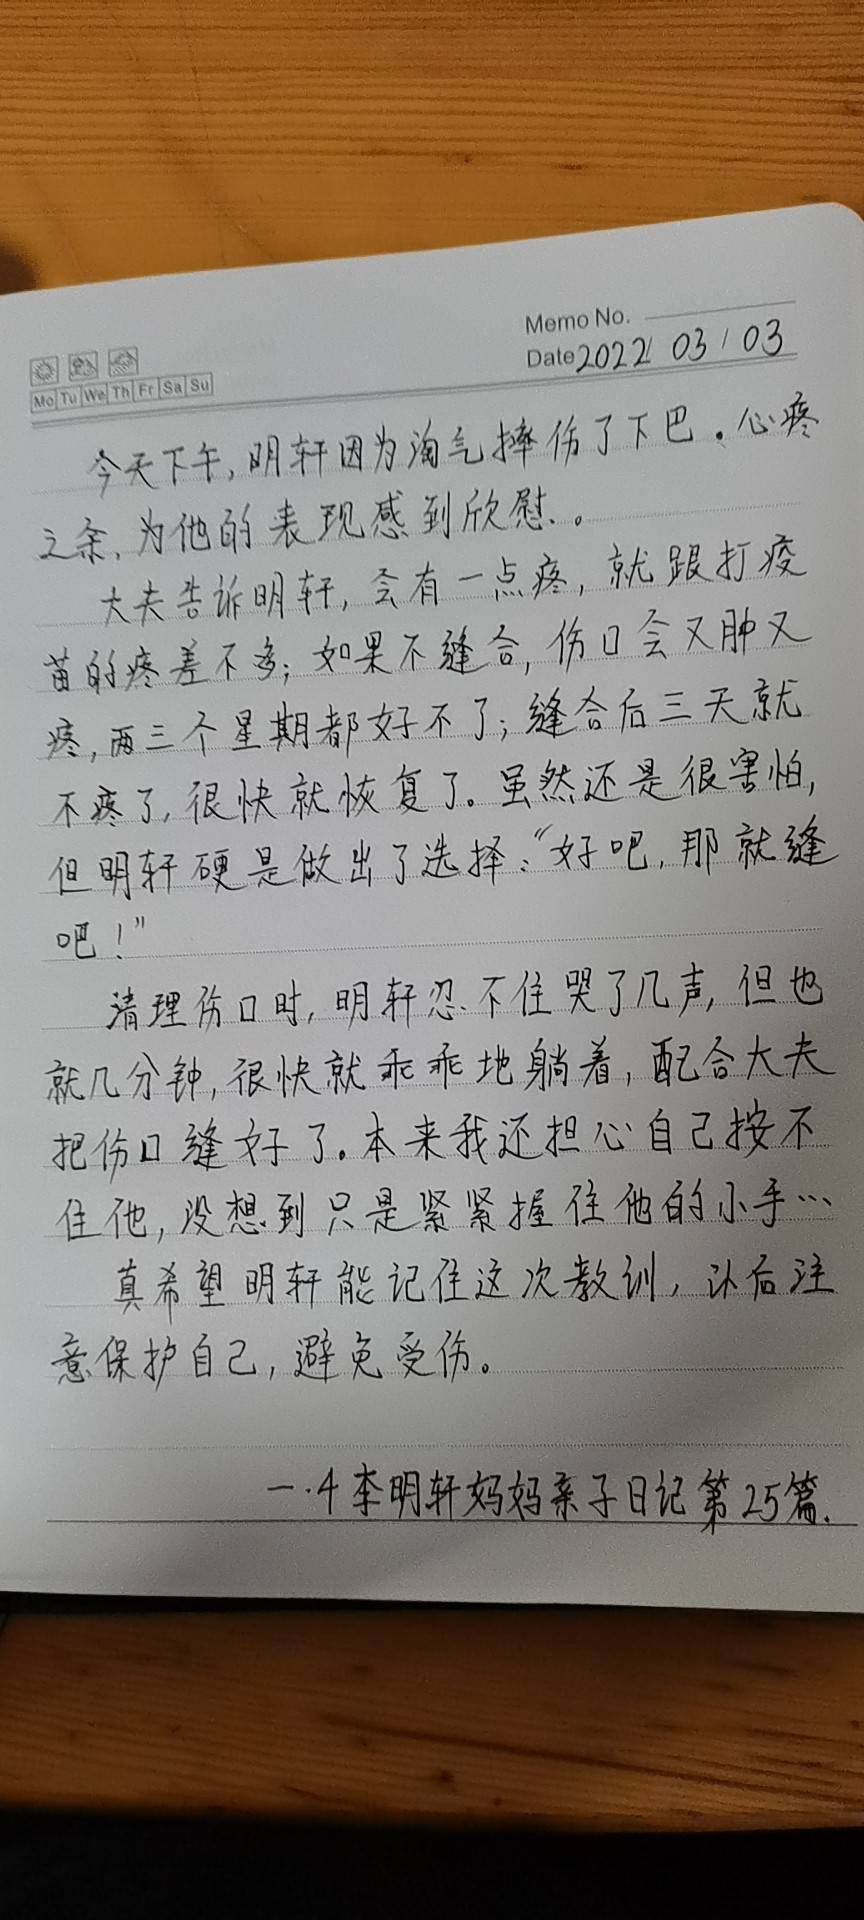 Memo No.
Date 2022/03/03
Mo Tu We Th Fr Sa Su
今天下午,明轩因为淘气摔伤了下巴。心疼
之余,为他的表现感到欣慰。
大夫告诉明轩,会有一点疼,就跟打疫
苗的疼差不多;如果不缝合,伤口会又肿又
疼,两三个星期都好不了;缝合后三天就
不疼了,很快就恢复了。虽然还是很害怕,
但明轩硬是做出了选择:“好吧,那就缝
吧!”
清理伤口时,明轩忍不住哭了几声,但也
就几分钟,很快就乖乖地躺着,配合大夫
把伤口缝好了。本来我还担心自己按不
住他,没想到只是紧紧握住他的小手…
真希望明轩能记住这次教训,以后注
意保护自己,避免受伤。
一.4李明轩妈妈亲子日记第25篇.